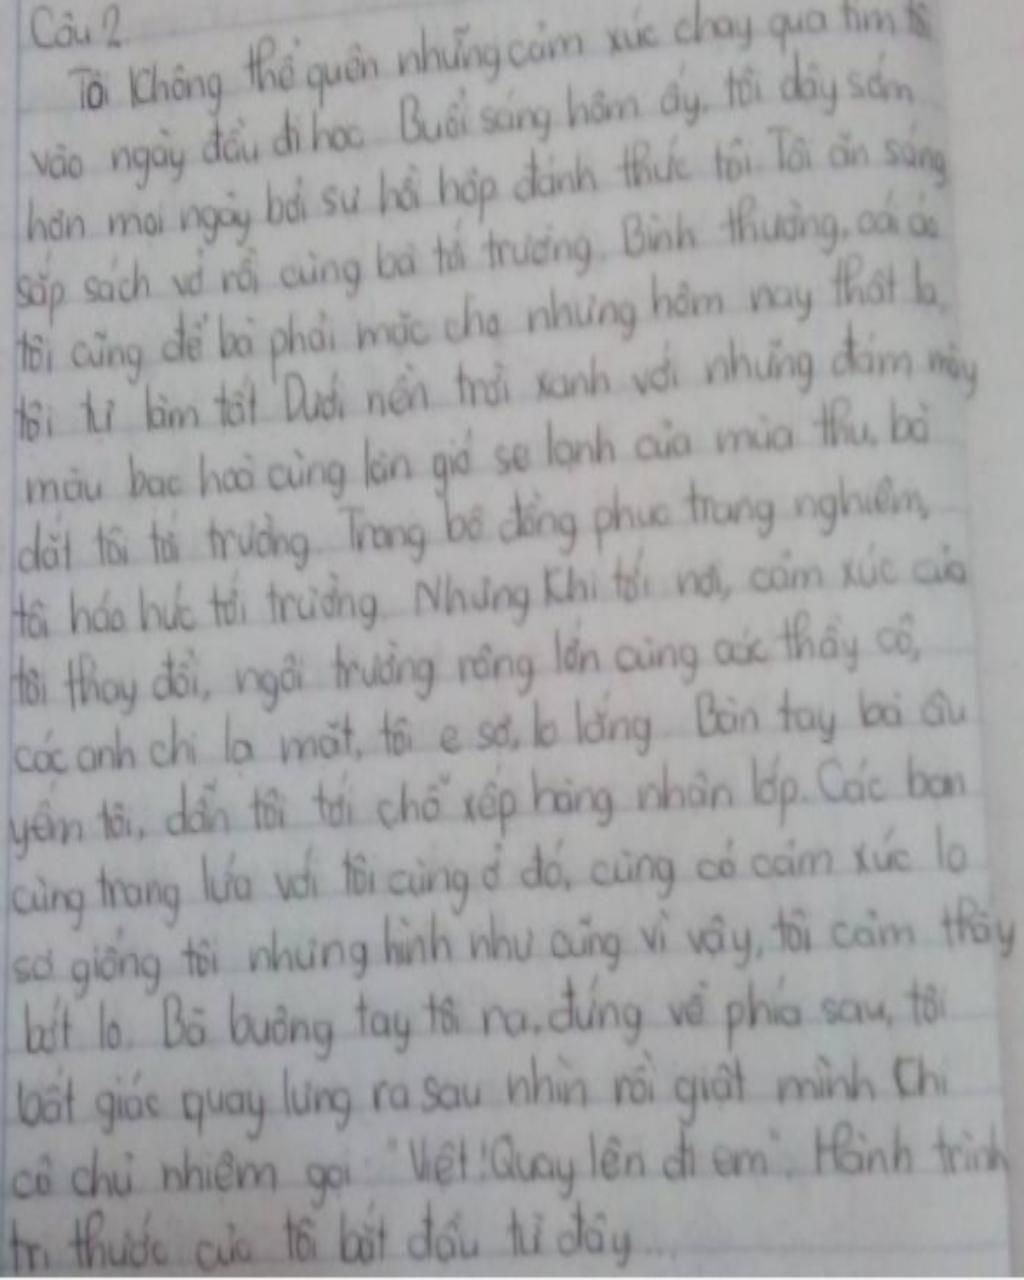 Câu 2.
Tôi Không thể quên những cảm xúc chạy qua tim tôi
vào ngày đầu đi học. Buổi sáng hôm ấy, tôi dậy sớm
hơn mọi ngày bởi sự hồi hộp đánh thức tôi. Tôi ăn sáng
sắp sách vở rồi cùng bà tới trường. Bình thường, cái áo
tôi cũng để bà phải mặc cho nhưng hôm nay thật lạ,
tôi tự làm tất. Dưới nền trời xanh với những đám mây
màu bạc hoà cùng làn gió se lạnh của mùa thu, bà
dắt tôi tới trường. Trong bộ đồng phục trang nghiêm,
tôi háo hức tới trường. Nhưng Khi tới nơi, cảm xúc của
tôi thay đổi, ngôi trường rộng lớn cùng các thầy cô,
các anh chị lạ mặt, tôi e sợ, lo lắng. Bàn tay bà âu
yếm tôi, dẫn tôi tới chỗ xếp hàng nhận lớp. Các bạn
cùng trang lứa với tôi cũng ở đó, cũng có cảm xúc lo
sợ giống tôi nhưng hình như cũng vì vậy, tôi cảm thấy
bớt lo. Bà buông tay tôi ra, đứng về phía sau, tôi
bất giác quay lưng ra sau nhìn rồi giật mình Khi
cô chủ nhiệm gọi: "Việt! Quay lên đi em". Hành trình
tri thức của tôi bắt đầu từ đây...